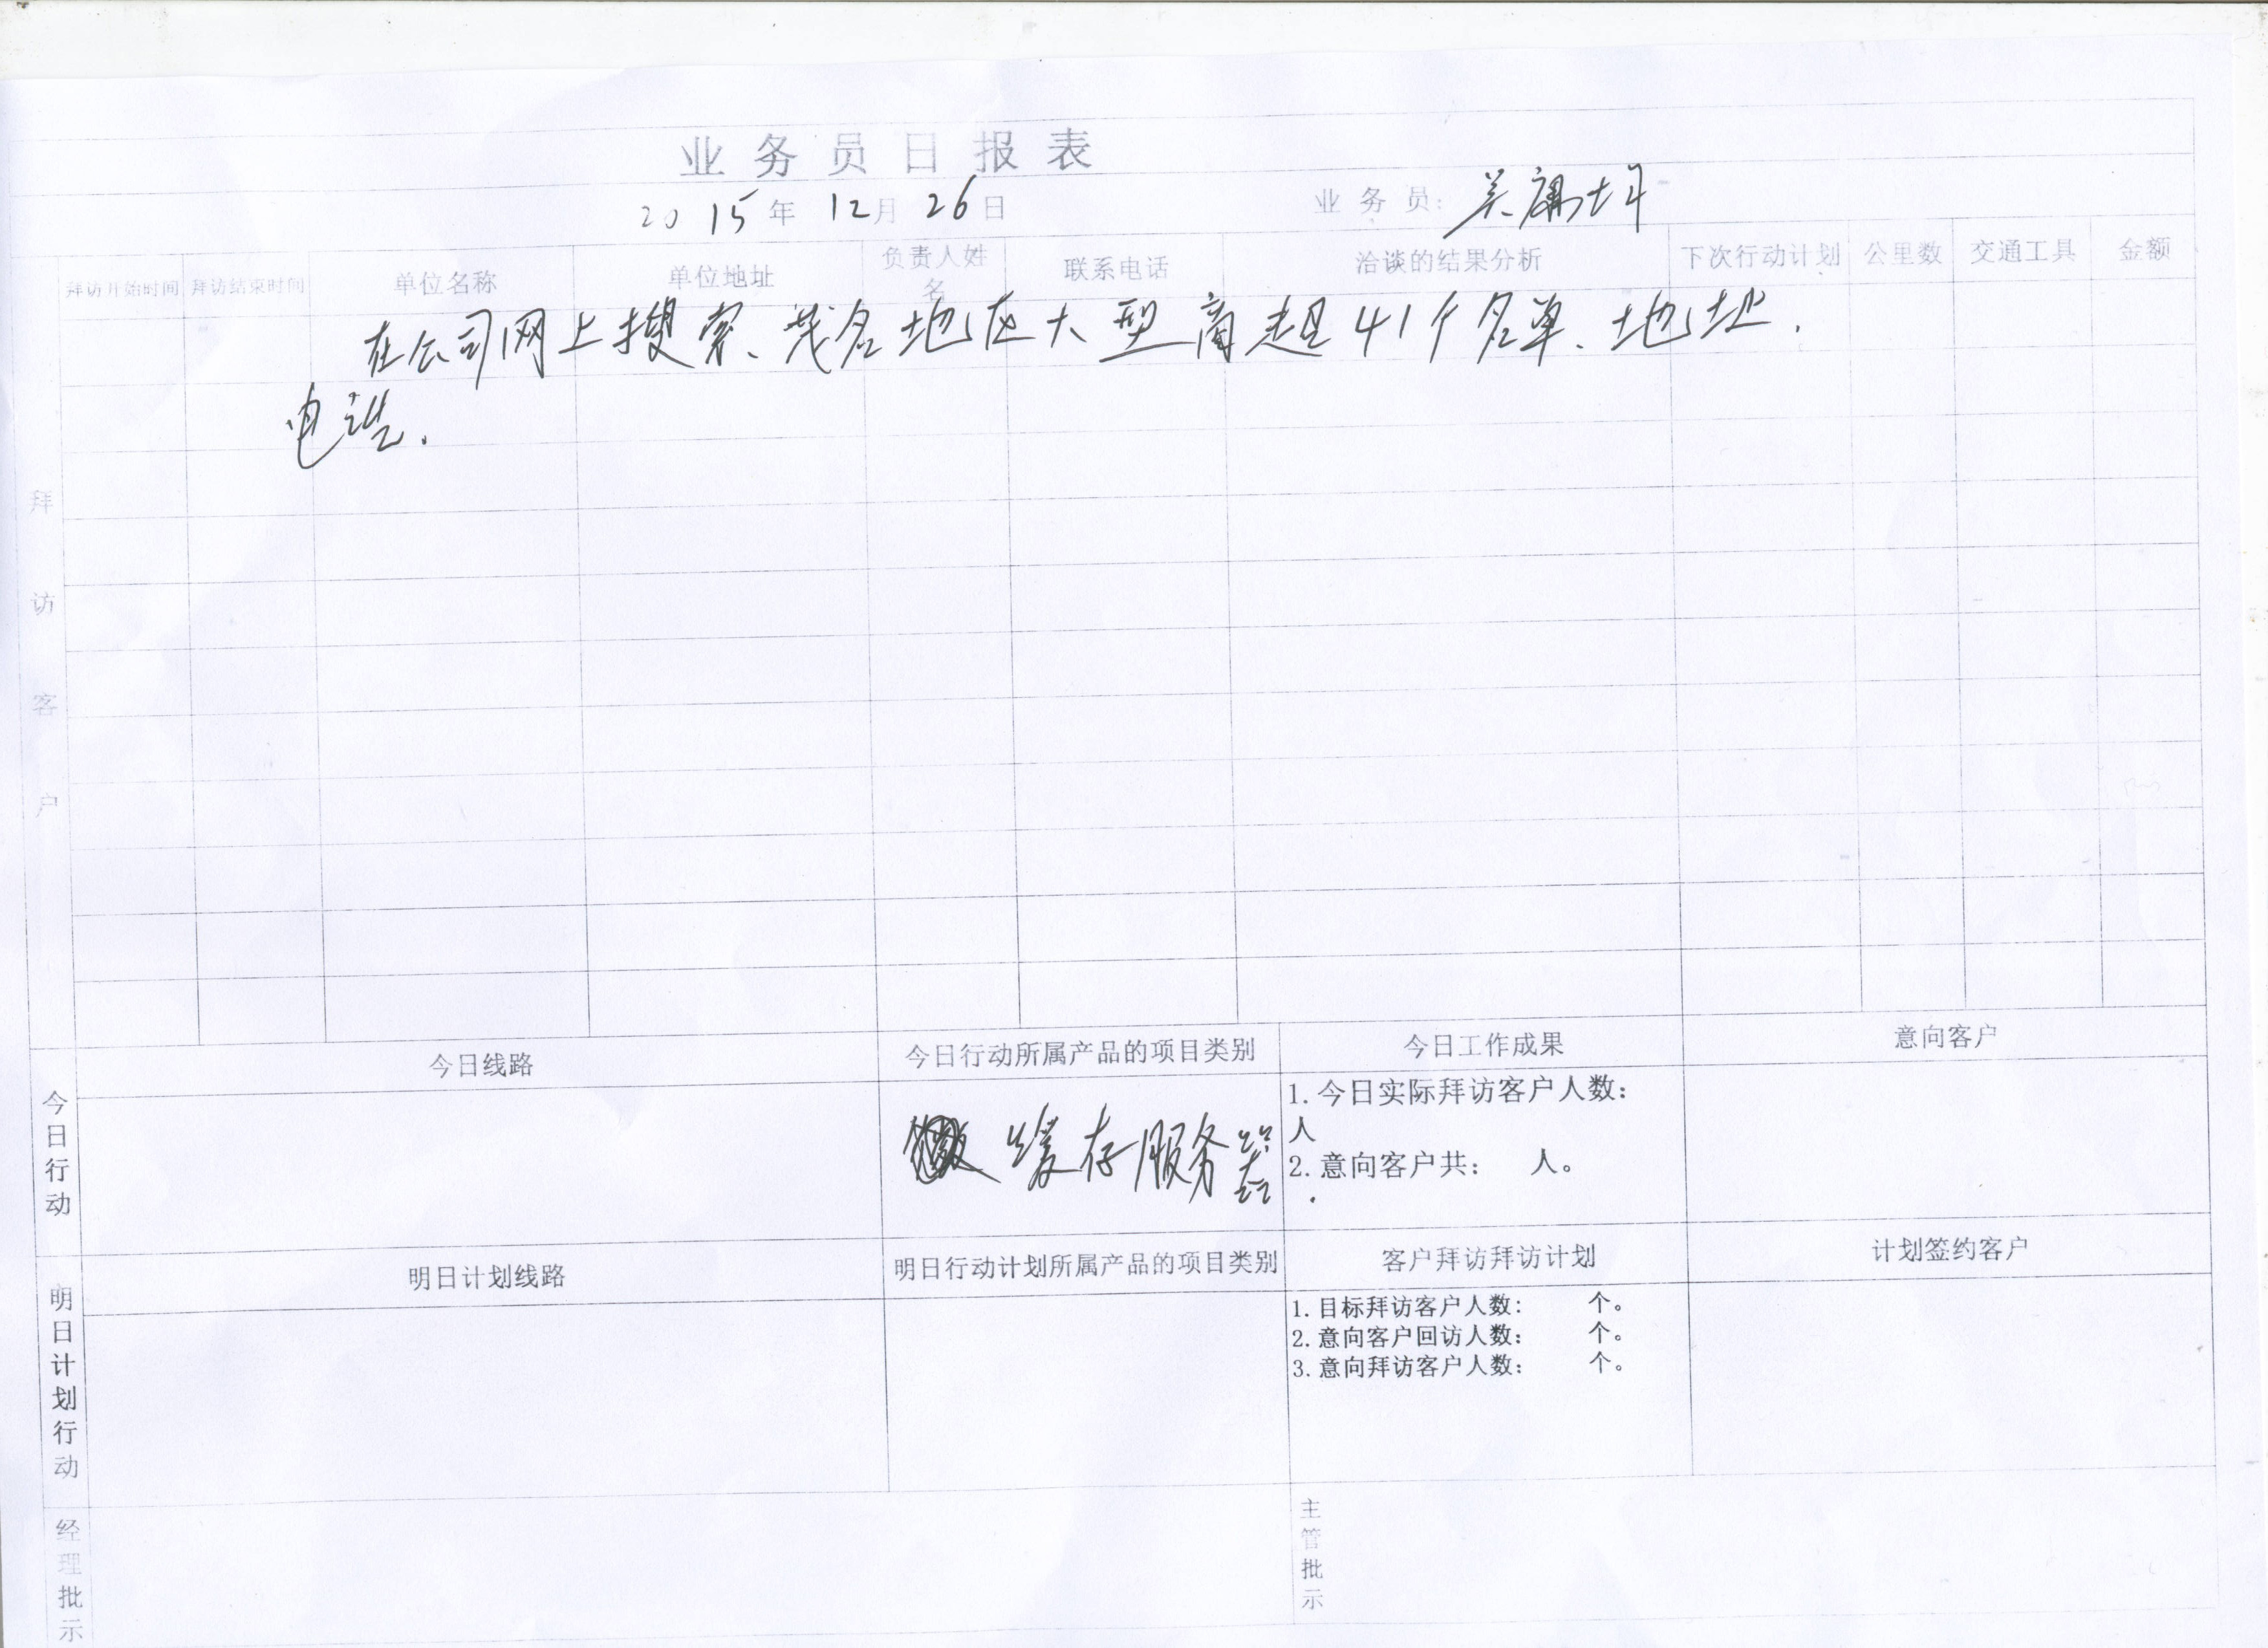 业务员日报表
2015年12月26日 业务员:
拜访开始时间 拜访结束时间 单位名称 单位地址 负责人姓名 联系电话 洽谈的结果分析 下次行动计划 公里数 交通工具 金额
拜访客户
在公司网上搜索、茂名地区大型商超41个名单、地址.
电话.
今日行动
今日线路 今日行动所属产品的项目类别 今日工作成果 意向客户
缓存服务器.
1.今日实际拜访客户人数:
人
2.意向客户共: 人。
明日计划行动
明日计划线路 明日行动计划所属产品的项目类别 客户拜访拜访计划 计划签约客户
1.目标拜访客户人数: 个。
2.意向客户回访人数: 个。
3.意向拜访客户人数: 个。
经理批示
主管批示